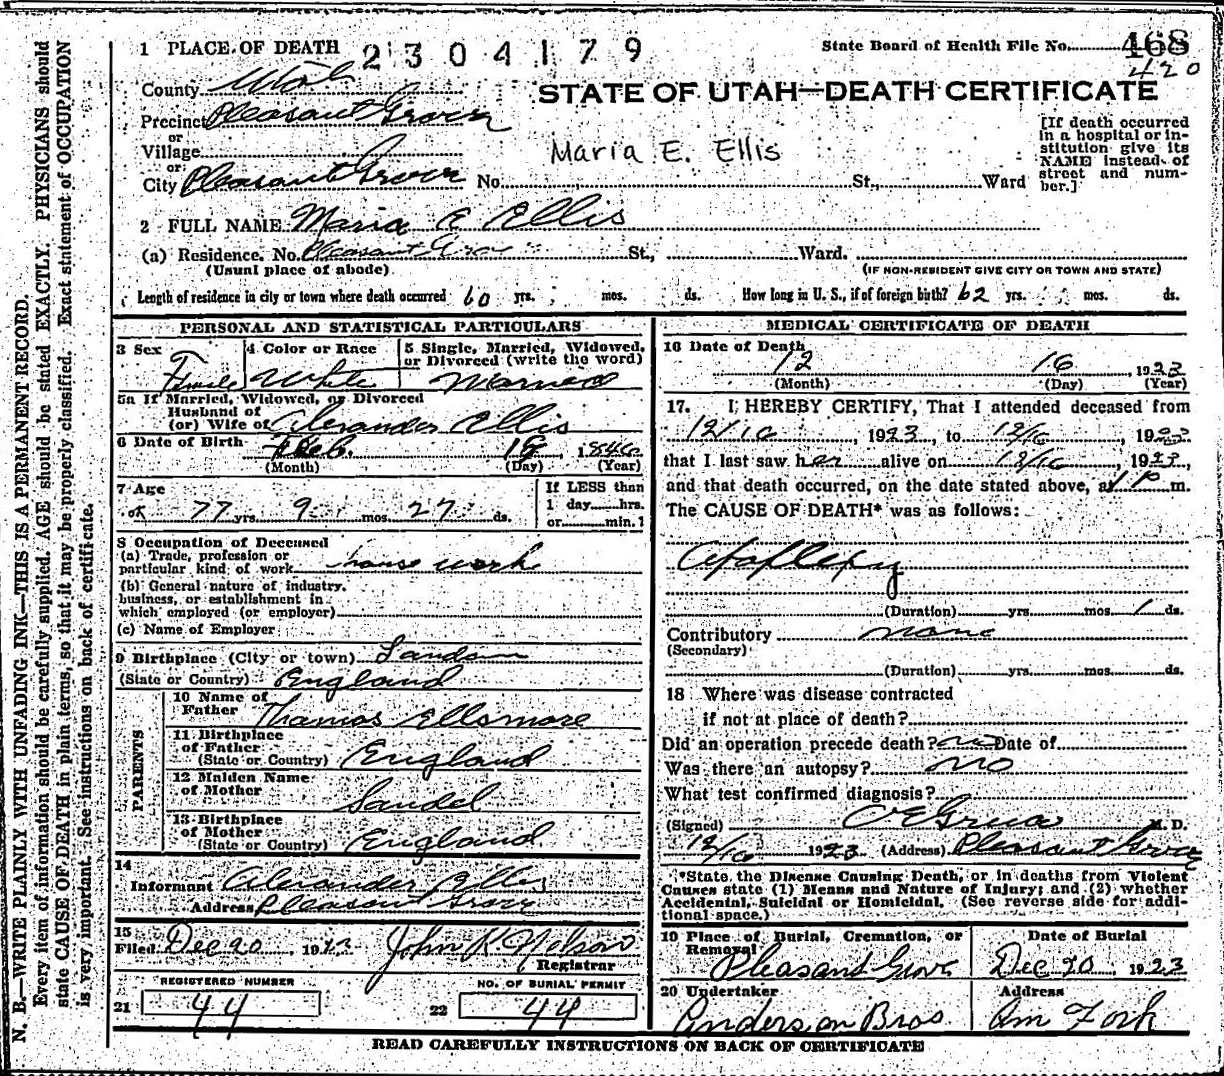 1 PLACE OF DEATH 2304179 State Board of Health File No. 468
420
County Utah
STATE OF UTAH—DEATH CERTIFICATE
Precinct Pleasant Grove
or
Village
or
City Pleasant Grove No. St., Ward
Maria E. Ellis
[If death occurred
in a hospital or in-
stitution give its
NAME instead of
street and num-
ber.]
2 FULL NAME Maria E Ellis
(a) Residence. No. Pleasant Grove St., Ward.
(Usual place of abode) (IF NON-RESIDENT GIVE CITY OR TOWN AND STATE)
Length of residence in city or town where death occurred 60 yrs. mos. ds. How long in U. S., if of foreign birth? 62 yrs. mos. ds.
PERSONAL AND STATISTICAL PARTICULARS
3 Sex Female
4 Color or Race White
5 Single, Married, Widowed,
or Divorced (write the word)
Married
5a If Married, Widowed, or Divorced
Husband of
(or) Wife of Alexander Ellis
6 Date of Birth Feb. 18, 1846
(Month) (Day) (Year)
7 Age If LESS than
77 yrs. 9 mos. 27 ds. 1 day hrs.
or min.?
8 Occupation of Deceased
(a) Trade, profession or
particular kind of work house work
(b) General nature of industry,
business, or establishment in
which employed (or employer)
(c) Name of Employer
9 Birthplace (City or town) London
(State or Country) England
PARENTS
10 Name of
Father Thomas Ellsmore
11 Birthplace
of Father
(State or Country) England
12 Maiden Name
of Mother Sandel
13 Birthplace
of Mother
(State or Country) England
14
Informant Alexander Ellis
Address Pleasant Grove
15
Filed Dec 20, 1923 John K Nelson
Registrar
REGISTERED NUMBER NO. OF BURIAL PERMIT
21 44 22 44
MEDICAL CERTIFICATE OF DEATH
16 Date of Death
12 16, 1923
(Month) (Day) (Year)
17. I HEREBY CERTIFY, That I attended deceased from
12/16, 1923, to 12/16, 1923
that I last saw her alive on 12/16, 1923,
and that death occurred, on the date stated above, at 1 P m.
The CAUSE OF DEATH* was as follows:
Apoplexy
(Duration) yrs. mos. 1 ds.
Contributory none
(Secondary)
(Duration) yrs. mos. ds.
18 Where was disease contracted
if not at place of death?
Did an operation precede death? no Date of
Was there an autopsy? no
What test confirmed diagnosis?
(Signed) M. D.
12/16 1923 (Address) Pleasant Grove
*State the Disease Causing Death, or in deaths from Violent
Causes state (1) Means and Nature of Injury; and (2) whether
Accidental, Suicidal or Homicidal. (See reverse side for addi-
tional space.)
19 Place of Burial, Cremation, or
Removal
Pleasant Grove
Date of Burial
Dec 20, 1923
20 Undertaker
Anderson Bros
Address
Am Fork
READ CAREFULLY INSTRUCTIONS ON BACK OF CERTIFICATE
N. B.—WRITE PLAINLY WITH UNFADING INK—THIS IS A PERMANENT RECORD.
Every item of information should be carefully supplied. AGE should be stated EXACTLY. PHYSICIANS should
state CAUSE OF DEATH in plain terms, so that it may be properly classified. Exact statement of OCCUPATION
is very important. See instructions on back of certificate.